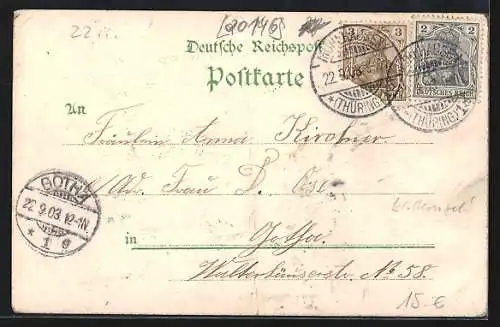 22.
[20146]
Deutsche Reichspost
Postkarte
3
2
DEUTSCHES REICH
22.9.03
*(THÜRING.)
(THÜRING.)
An
Fräulein Anna Kirchner
Adr. Frau D. Ose
GOTHA
22.9.03. 12-1N.
* 1 e
in Gotha.
Walterhäuserstr. No 58.
15.-€